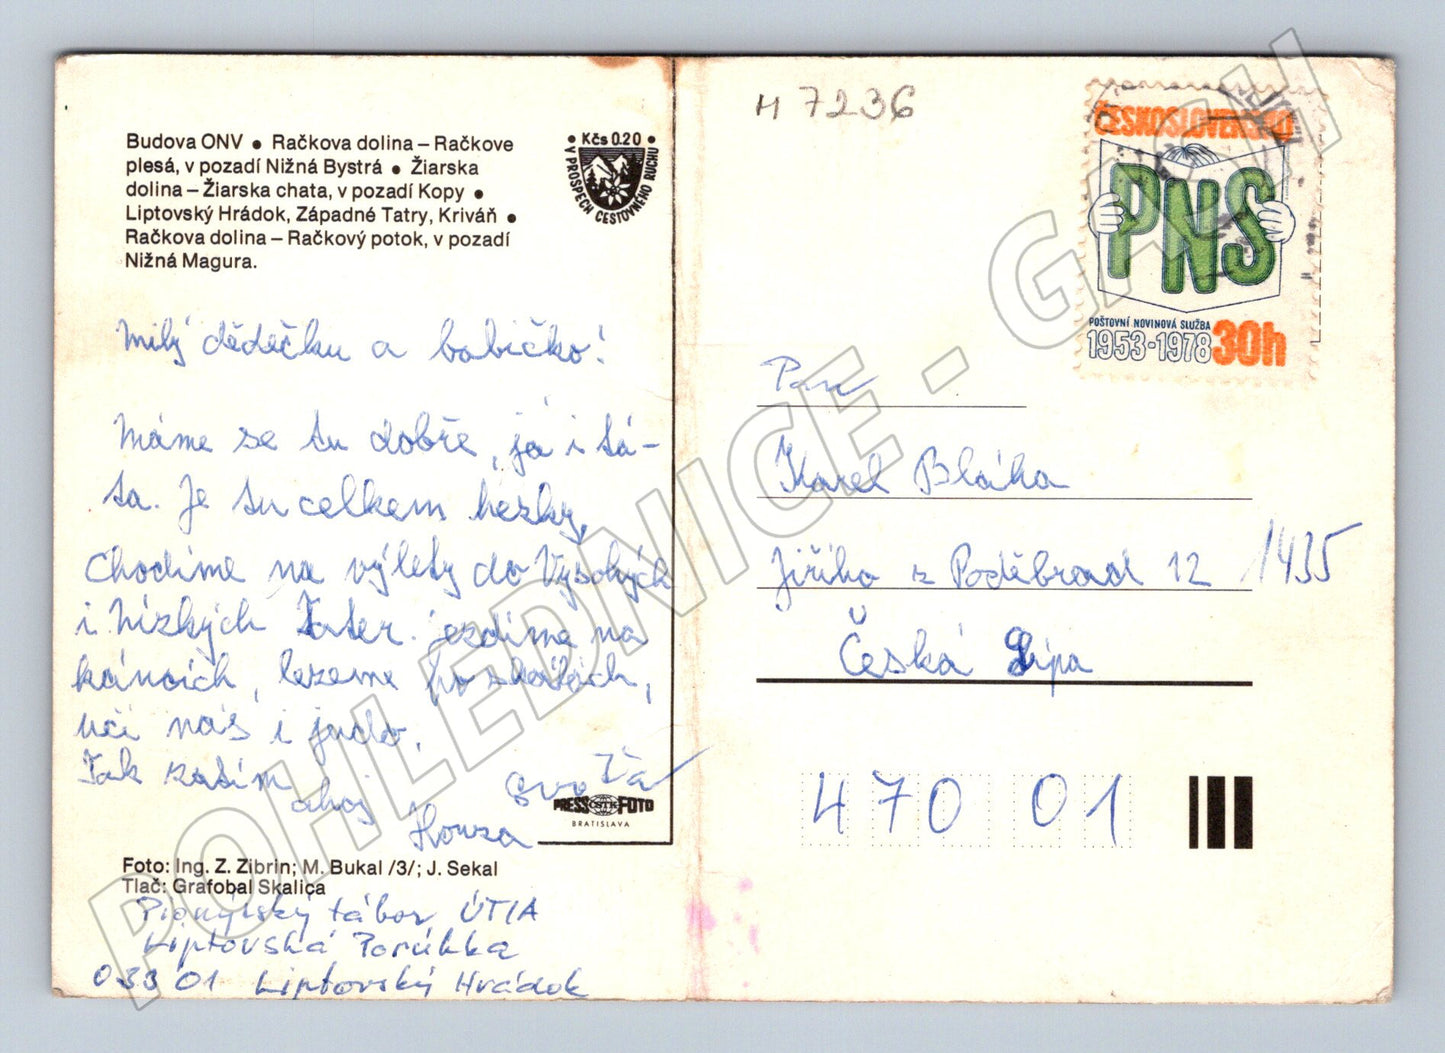 Budova ONV • Račkova dolina – Račkove
plesá, v pozadí Nižná Bystrá • Žiarska
dolina – Žiarska chata, v pozadí Kopy •
Liptovský Hrádok, Západné Tatry, Kriváň •
Račkova dolina – Račkový potok, v pozadí
Nižná Magura.
• Kčs 0.20 •
V PROSPECH CESTOVNÉHO RUCHU
Milý dědečku a babičko!
Máme se tu dobře, já i tá-
ta. Je tu celkem hezky,
chodíme na výlety do Vysokých
i Nízkých Tater. jezdíme na
kánoích, lezeme po skálách,
učí nás i judo.
Tak zatím
ahoj
Honza
PRESS ČSTK FOTO
BRATISLAVA
Foto: Ing. Z. Zibrin; M. Bukal /3/; J. Sekal
Tlač: Grafobal Skalica
Pionýrský tábor ÚTIA
Liptovská Porúbka
033 01 Liptovský Hrádok
M 7236
ČESKOSLOVENSKO
PNS
POŠTOVNÍ NOVINOVÁ SLUŽBA
1953-1978 30h
Pan
Karel Bláha
Jiřího z Poděbrad 12 /1435
Česká Lípa
470 01
POHLEDNICE - GASH